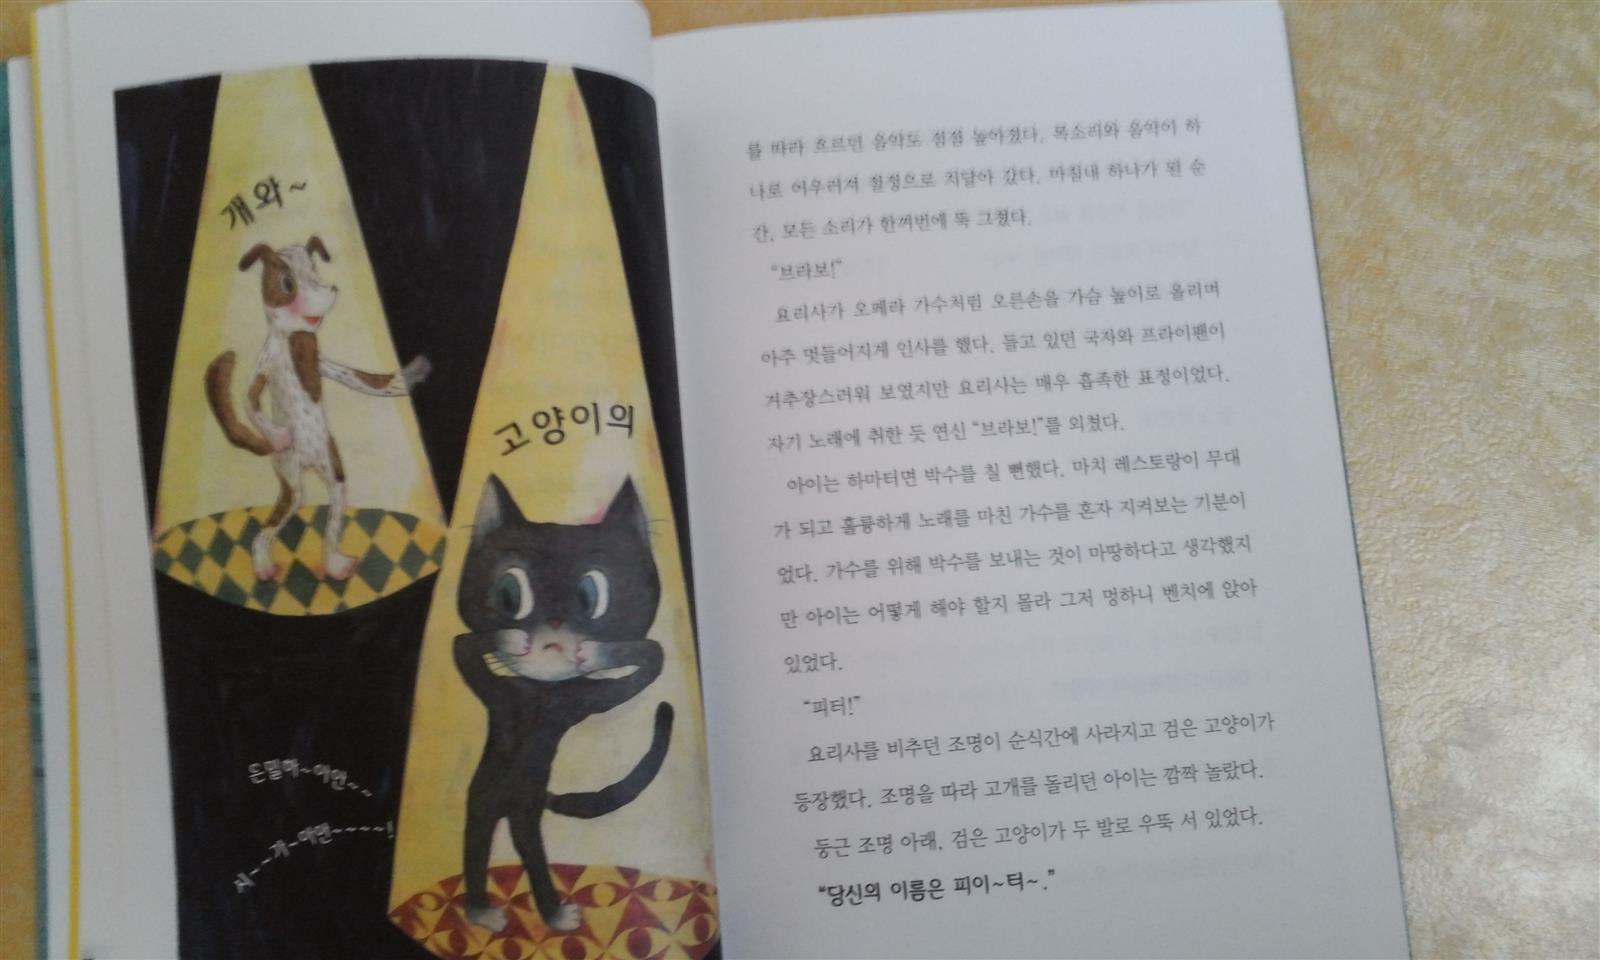 개와~
고양이의
은밀하~아안~~
시~~가~아안~~~~!
를 따라 흐르던 음악도 점점 높아졌다. 목소리와 음악이 하
나로 어우러져 절정으로 치달아 갔다. 마침내 하나가 된 순
간, 모든 소리가 한꺼번에 뚝 그쳤다.
“브라보!”
요리사가 오페라 가수처럼 오른손을 가슴 높이로 올리며
아주 멋들어지게 인사를 했다. 들고 있던 국자와 프라이팬이
거추장스러워 보였지만 요리사는 매우 흡족한 표정이었다.
자기 노래에 취한 듯 연신 “브라보!”를 외쳤다.
아이는 하마터면 박수를 칠 뻔했다. 마치 레스토랑이 무대
가 되고 훌륭하게 노래를 마친 가수를 혼자 지켜보는 기분이
었다. 가수를 위해 박수를 보내는 것이 마땅하다고 생각했지
만 아이는 어떻게 해야 할지 몰라 그저 멍하니 벤치에 앉아
있었다.
“피터!”
요리사를 비추던 조명이 순식간에 사라지고 검은 고양이가
등장했다. 조명을 따라 고개를 돌리던 아이는 깜짝 놀랐다.
둥근 조명 아래, 검은 고양이가 두 발로 우뚝 서 있었다.
“당신의 이름은 피이~터~.”